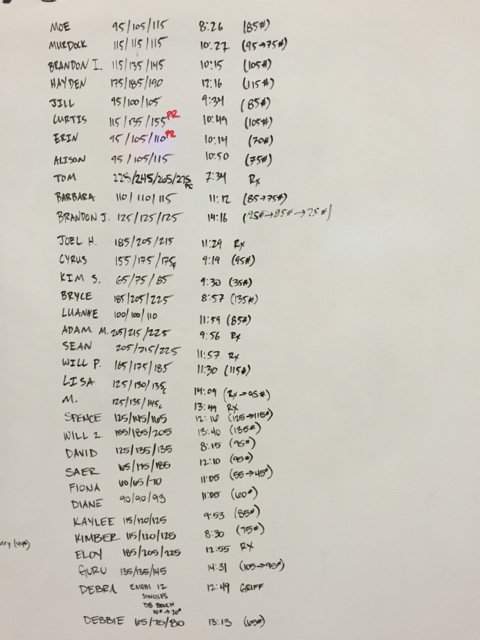 MOE 95/105/115 8:26 (85#)
MURDOCK 115/115/115 10:27 (95→75#)
BRANDON I. 115/135/145 10:15 (105#)
HAYDEN 175/185/190 12:16 (115#)
JILL 95/100/105 9:34 (85#)
CURTIS 115/135/155 PR 10:49 (105#)
ERIN 95/105/110 PR 10:14 (70#)
ALISON 95/105/115 10:50 (75#)
TOM 225/245/265/275 PC 7:34 Rx
BARBARA 110/110/115 11:12 (85→75#)
BRANDON J. 125/125/125 14:16 (95#→85#→75#)
JOEL H. 185/205/215 11:29 Rx
CYRUS 155/175/175 9:19 (95#)
KIM S. 65/75/85 9:30 (35#)
BRYCE 185/205/225 8:57 (135#)
LUANNE 100/100/110 11:59 (85#)
ADAM M. 205/215/225 9:56 Rx
SEAN 205/215/225 11:57 Rx
WILL P. 165/175/185 11:30 (115#)
LISA 125/130/135 14:09 (Rx→95#)
M. 125/135/145 13:49 Rx
SPENCE 125/145/165 12:16 (125→115#)
WILL Z. 185/205 13:40 (135#)
DAVID 125/135/135 8:15 (95#)
SAER 165/175/185 12:10 (95#)
FIONA 60/65/70 11:05 (55→45#)
DIANE 90/90/93 11:05 (60#)
KAYLEE 115/120/125 9:53 (85#)
KIMBER 115/120/125 8:30 (75#)
ELOY 185/205/225 12:55 RX
GURU 135/135/145 14:31 (105→95#)
DEBRA EMOM 12 12:49 GRIFF
SINGLES
DB BENCH
DEBBIE 65/70/80 13:13 (65#)